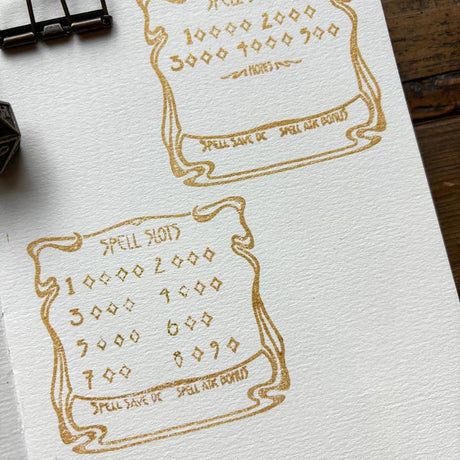 SPELL SLOTS
1◇◇◇◇ 2◇◇◇
3◇◇◇ 4◇◇◇ 5◇◇
NOTES
SPELL SAVE DC SPELL ATK BONUS
SPELL SLOTS
1◇◇◇◇ 2◇◇◇
3◇◇◇ 4◇◇◇
5◇◇◇ 6◇◇
7◇◇ 8◇9◇
SPELL SAVE DC SPELL ATK BONUS